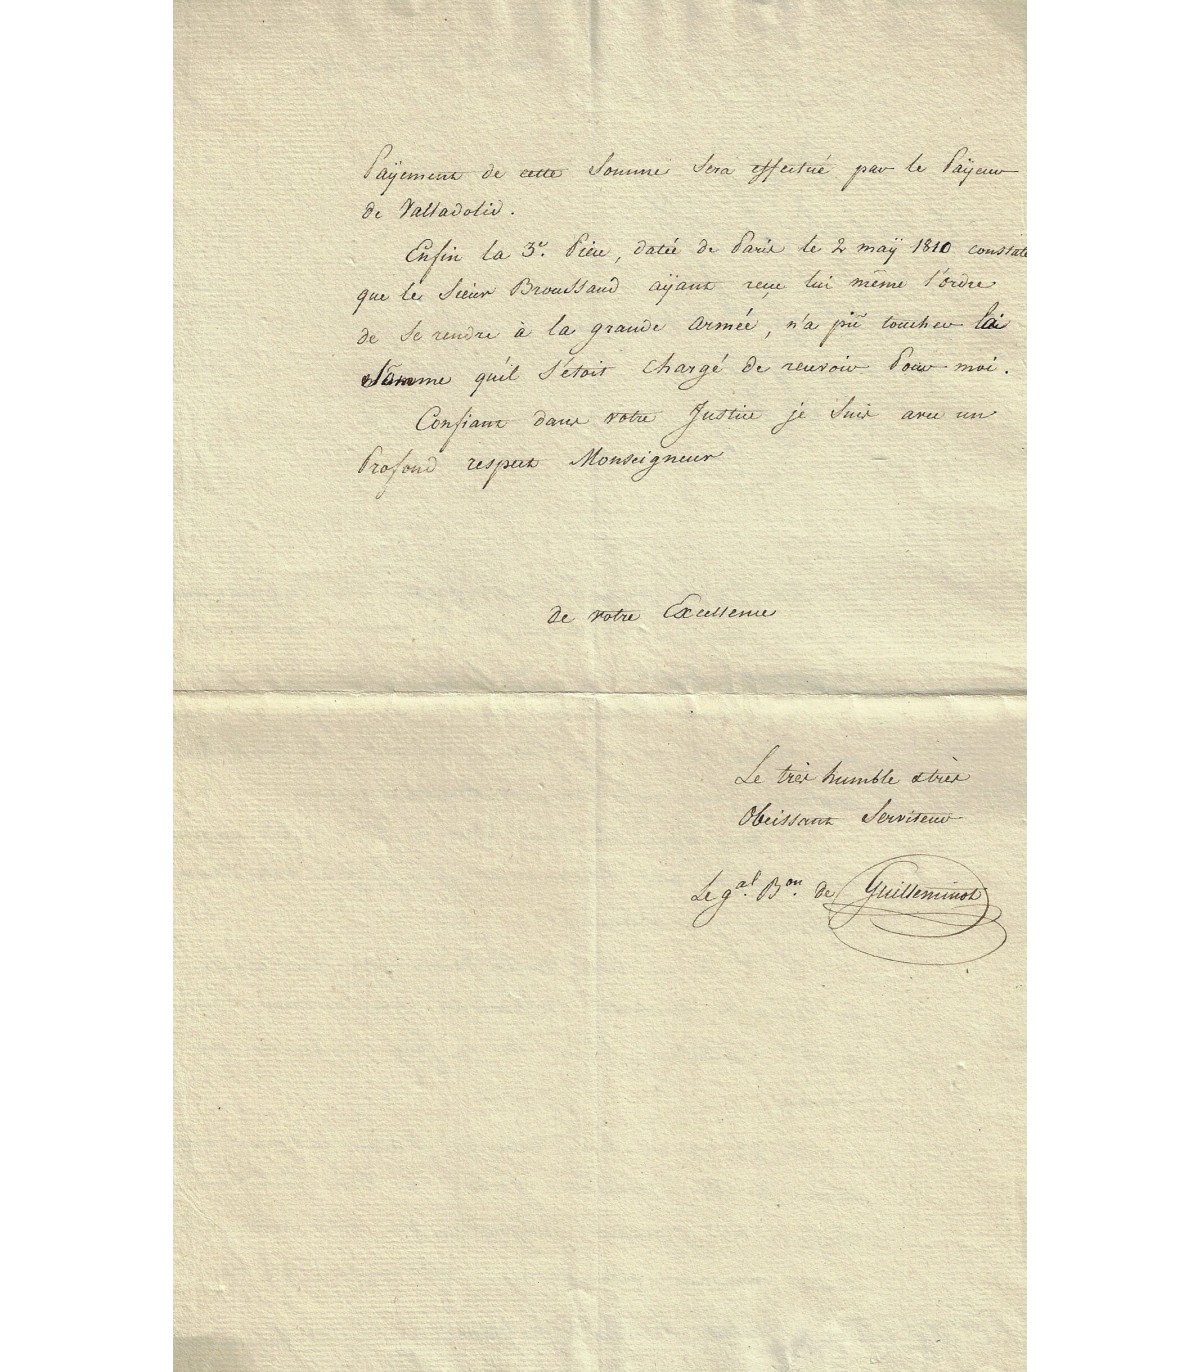 Paÿement de cette Somme Sera effectué par le Paÿeur
de Valladolid.
Enfin la 3e. Piece, datée de Paris le 2 maÿ 1810 constate
que le Sieur Broussaud aÿant reçu lui même l'ordre
de se rendre à la grande armée, n'a pû toucher la
Somme qu'il s'étoit chargé de recevoir Pour moi.
Confiant dans votre Justice je suis avec un
Profond respect Monseigneur
de votre Excellence
Le très humble & très
Obeissant Serviteur
Le gal. Bon. de Guilleminot